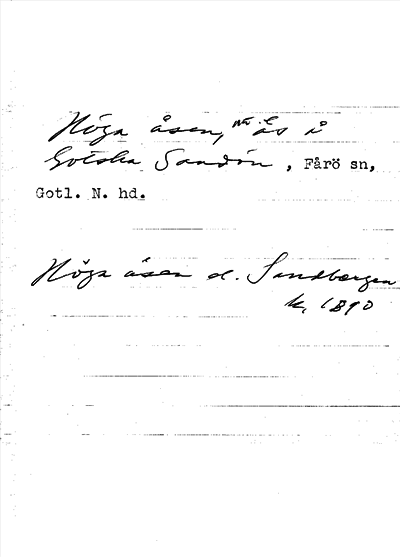 Höga åsen, ås i
Gotska Sandön, Fårö sn,
Gotl. N. hd.
Höga åsen el. Sandbergen
k, 1890